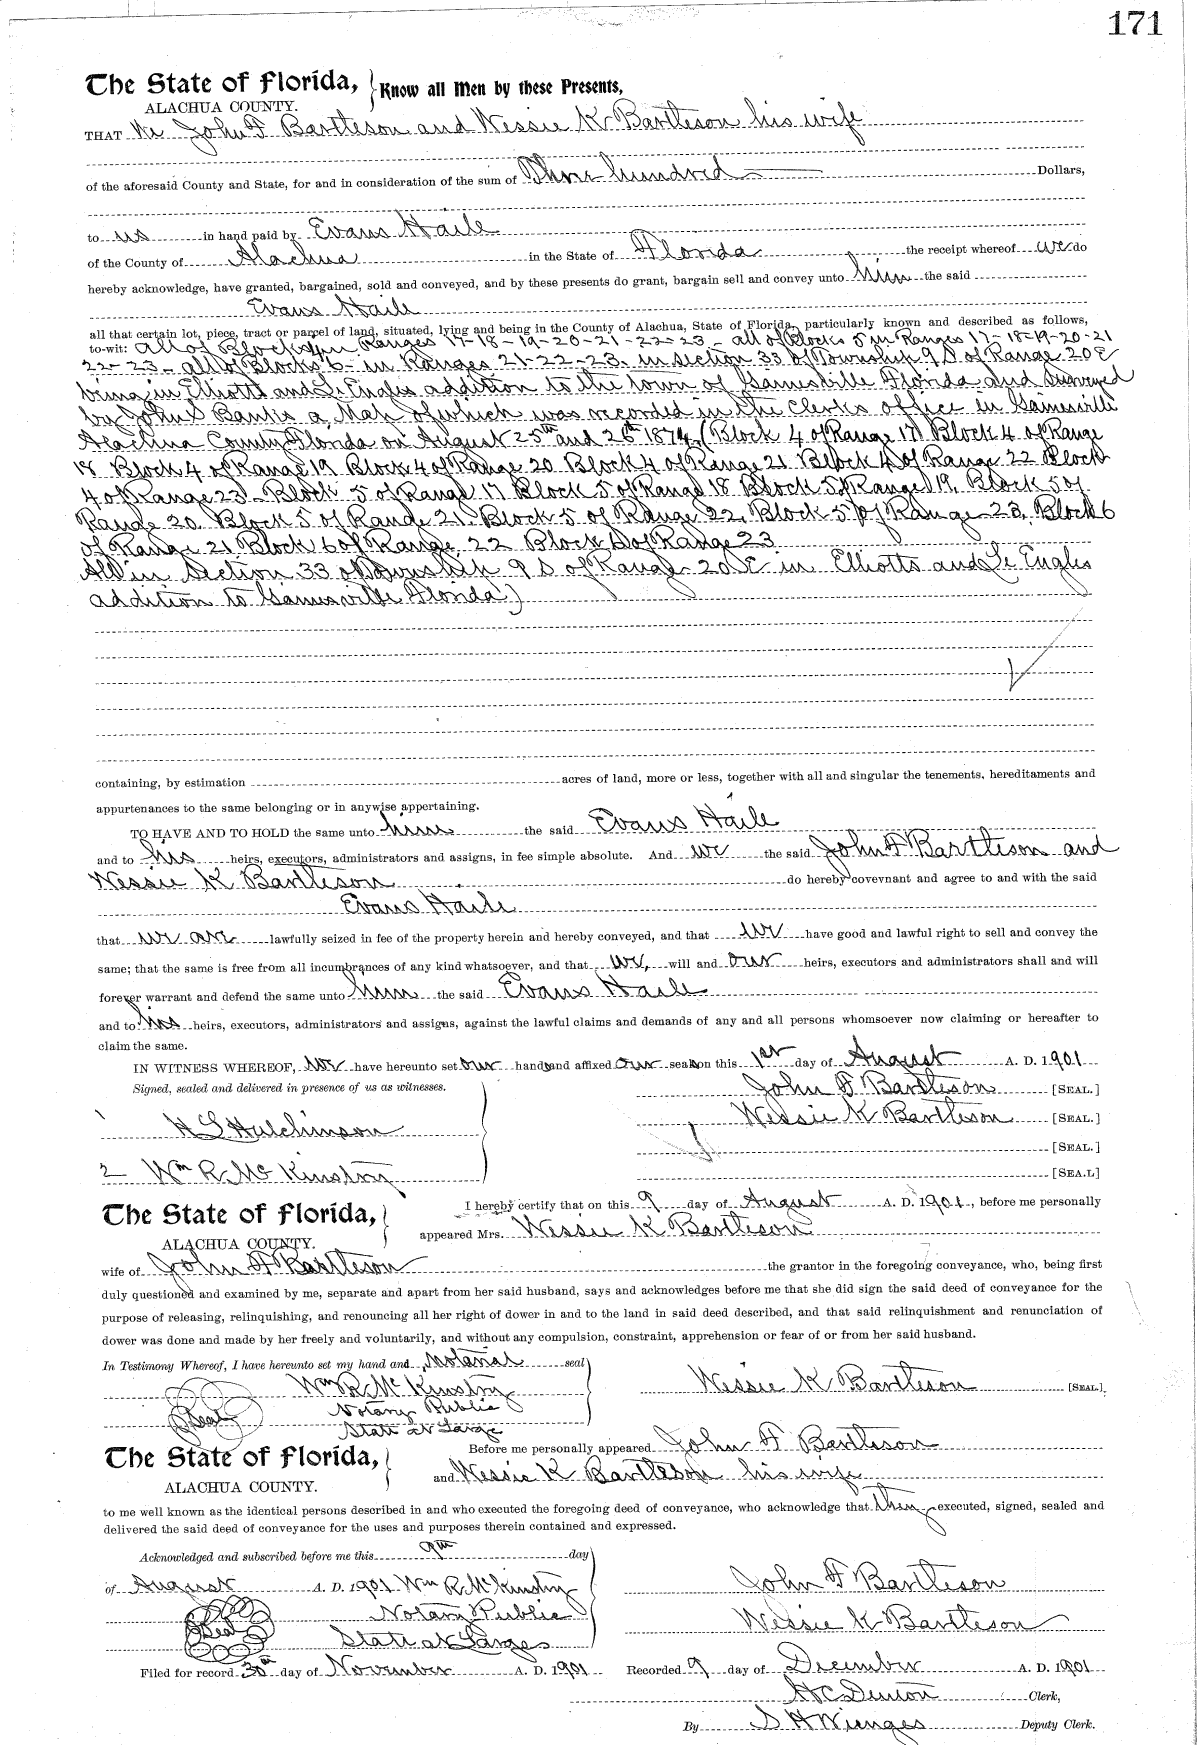 171
The State of Florida, Know all Men by these Presents,
ALACHUA COUNTY.
THAT We John F Bartleson and Wessie K Bartleson his wife
of the aforesaid County and State, for and in consideration of the sum of Three hundred Dollars,
to us in hand paid by Evans Haile
of the County of Alachua in the State of Florida the receipt whereof we do
hereby acknowledge, have granted, bargained, sold and conveyed, and by these presents do grant, bargain sell and convey unto him the said
Evans Haile
all that certain lot, piece, tract or parcel of land, situated, lying and being in the County of Alachua, State of Florida, particularly known and described as follows,
to-wit: All of Blocks 4 in Ranges 17-18-19-20-21-22-23- all of Blocks 5 in Ranges 17-18-19-20-21
22-23- all of Blocks 6- in Ranges 21-22-23. in section 33 of Township 9 S of Range 20 E
being in Elliotts and Le Engles addition to the town of Gainesville Florida and surveyed
by John S Banks a Map of which was recorded in the Clerks office in Gainesville
Alachua County Florida on August 25th and 26th 1874, (Block 4 of Range 17 Block 4 of Range
18 Block 4 of Range 19 Block 4 of Range 20 Block 4 of Range 21 Block 4 of Range 22 Block
4 of Range 23- Block 5 of Range 17 Block 5 of Range 18 Block 5 of Range 19. Block 5 of
Range 20. Block 5 of Range 21. Block 5 of Range 22, Block 5 of Range 23, Block 6
of Range 21 Block 6 of Range 22 Block 6 of Range 23
All in Section 33 of Township 9 S of Range 20 E in Elliotts and Le Engles
addition to Gainesville Florida)
containing, by estimation acres of land, more or less, together with all and singular the tenements, hereditaments and
appurtenances to the same belonging or in anywise appertaining.
TO HAVE AND TO HOLD the same unto him the said Evans Haile
and to his heirs, executors, administrators and assigns, in fee simple absolute. And we the said John F Bartleson and
Wessie K Bartleson do hereby covevnant and agree to and with the said
Evans Haile
that we are lawfully seized in fee of the property herein and hereby conveyed, and that we have good and lawful right to sell and convey the
same; that the same is free from all incumbrances of any kind whatsoever, and that we, will and our heirs, executors and administrators shall and will
forever warrant and defend the same unto him the said Evans Haile
and to his heirs, executors, administrators and assigns, against the lawful claims and demands of any and all persons whomsoever now claiming or hereafter to
claim the same.
IN WITNESS WHEREOF, we have hereunto set our hands and affixed our seals on this 1st day of August A. D. 1901
Signed, sealed and delivered in presence of us as witnesses. John F Bartleson [SEAL.]
1 H S Hutchinson Wessie K Bartleson [SEAL.]
[SEAL.]
2 Wm R. Mc Kinstry [SEA.L]
The State of Florida, I hereby certify that on this 9 day of August A. D. 1901, before me personally
ALACHUA COUNTY. appeared Mrs. Wessie K Bartleson
wife of John F Bartleson the grantor in the foregoing conveyance, who, being first
duly questioned and examined by me, separate and apart from her said husband, says and acknowledges before me that she did sign the said deed of conveyance for the
purpose of releasing, relinquishing, and renouncing all her right of dower in and to the land in said deed described, and that said relinquishment and renunciation of
dower was done and made by her freely and voluntarily, and without any compulsion, constraint, apprehension or fear of or from her said husband.
In Testimony Whereof, I have hereunto set my hand and Notarial seal
Wm R. Mc Kinstry Wessie K Bartleson [SEAL.]
Seal Notary Public
State at Large
The State of Florida, Before me personally appeared John F Bartleson
ALACHUA COUNTY. and Wessie K Bartleson his wife
to me well known as the identical persons described in and who executed the foregoing deed of conveyance, who acknowledge that they executed, signed, sealed and
delivered the said deed of conveyance for the uses and purposes therein contained and expressed.
Acknowledged and subscribed before me this 9th day
of August A. D. 1901 Wm R. Mc Kinstry John F Bartleson
Seal Notary Public Wessie K Bartleson
State at Large
Filed for record 30th day of November A. D. 1901 Recorded 9 day of December A. D. 1901
H C Denton Clerk,
By S H Wienges Deputy Clerk.